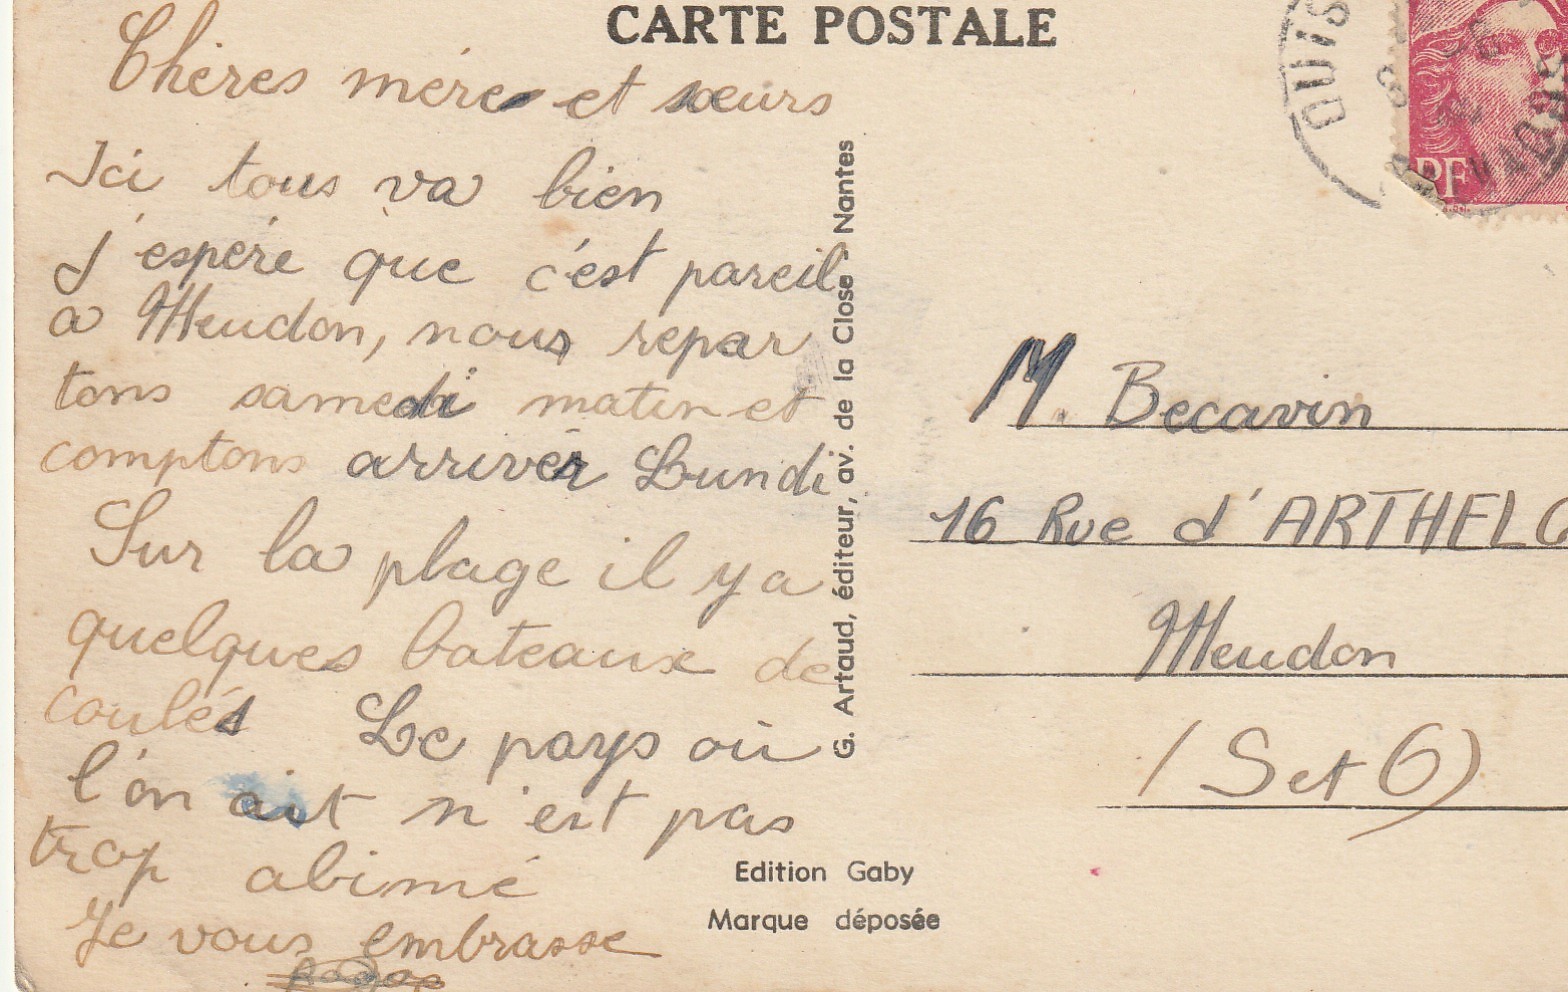 CARTE POSTALE
Chères mére et sœurs
Ici tous va bien
J'espére que c'est pareil
a Meudon, nous repar
tons samedi matin et
comptons arriver Lundi
Sur la plage il y a
quelques bateaux de
coulés Le pays où
l'on ait n'est pas
trop abimé
Je vous embrasse
G. Artaud, éditeur, av. de la Close - Nantes
Edition Gaby
Marque déposée
OUIS
RF
M. Becavin
16 Rue d'ARTHELO
Meudon
(S et O)